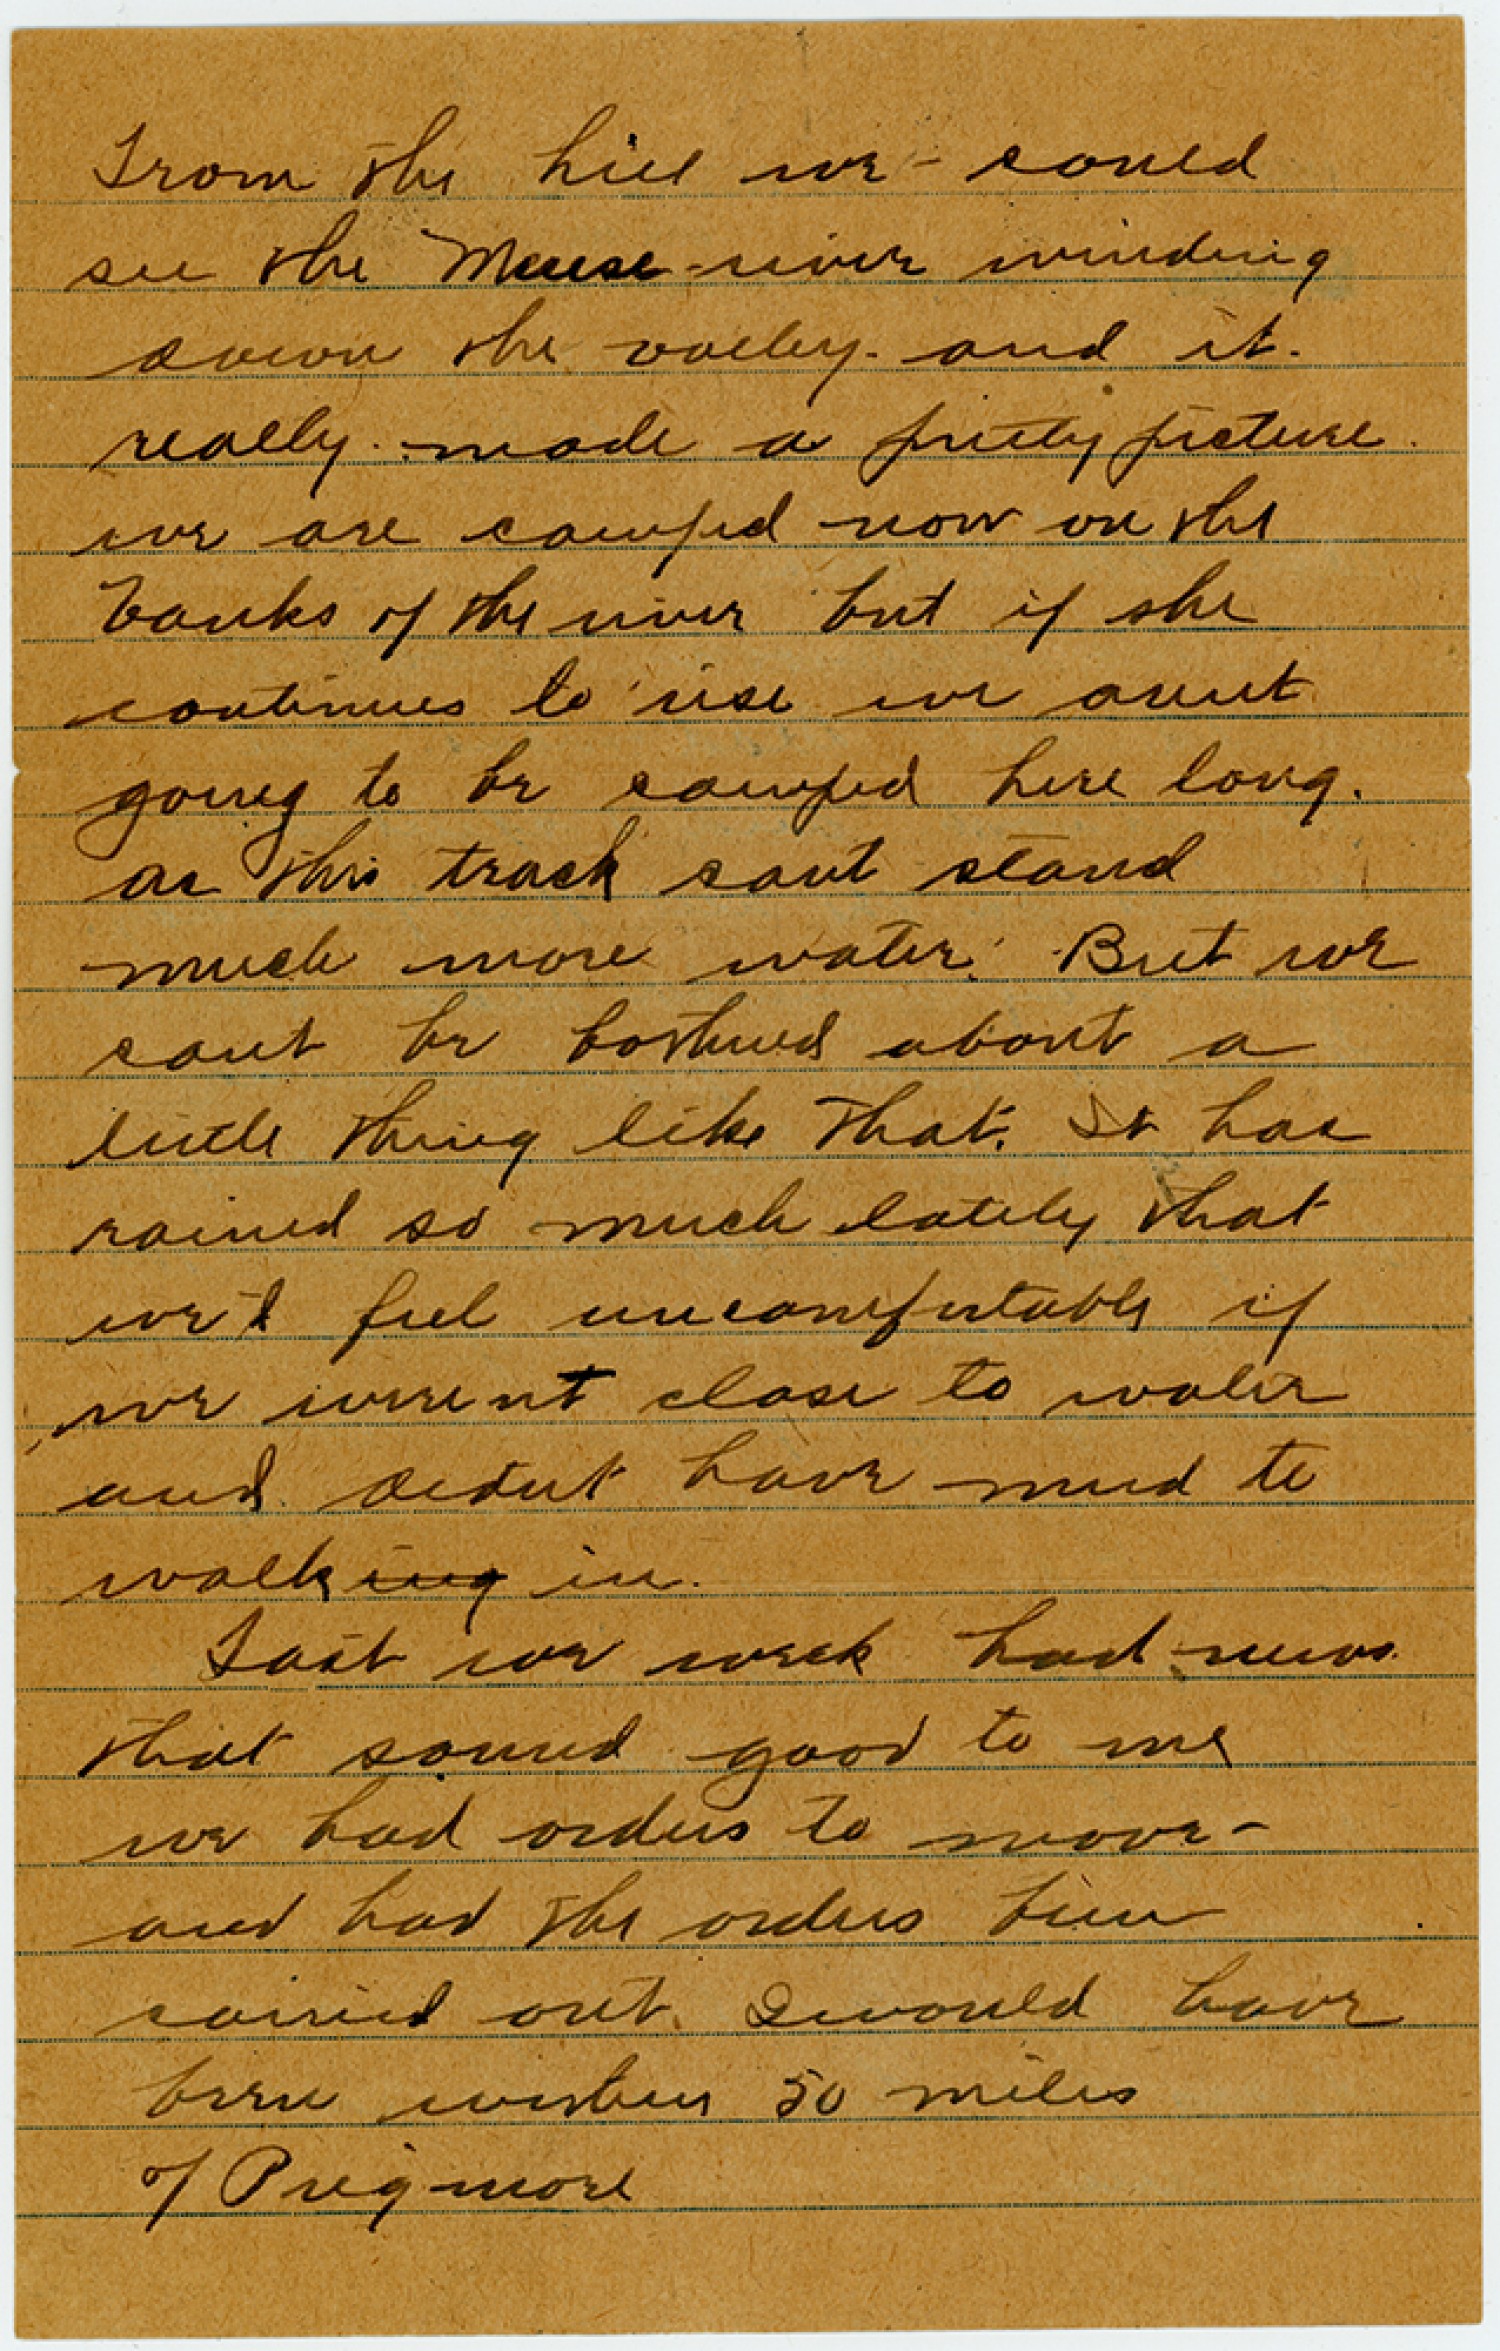 From the hill we could
see the Meuse river winding
down the valley. and it.
really made a pretty picture.
we are camped now on the
banks of the river but if she
continues to rise we arent
going to be camped here long.
as this track cant stand
much more water. But we
cant be bothered about a
little thing like that. It has
rained so much lately that
we'd feel uncomfortable if
we werent close to water
and didnt have mud to
walking in.
Last we week had news
that sound good to me
we had orders to move-
and had the orders been
carried out. I would have
been within 50 miles
of Prigmore